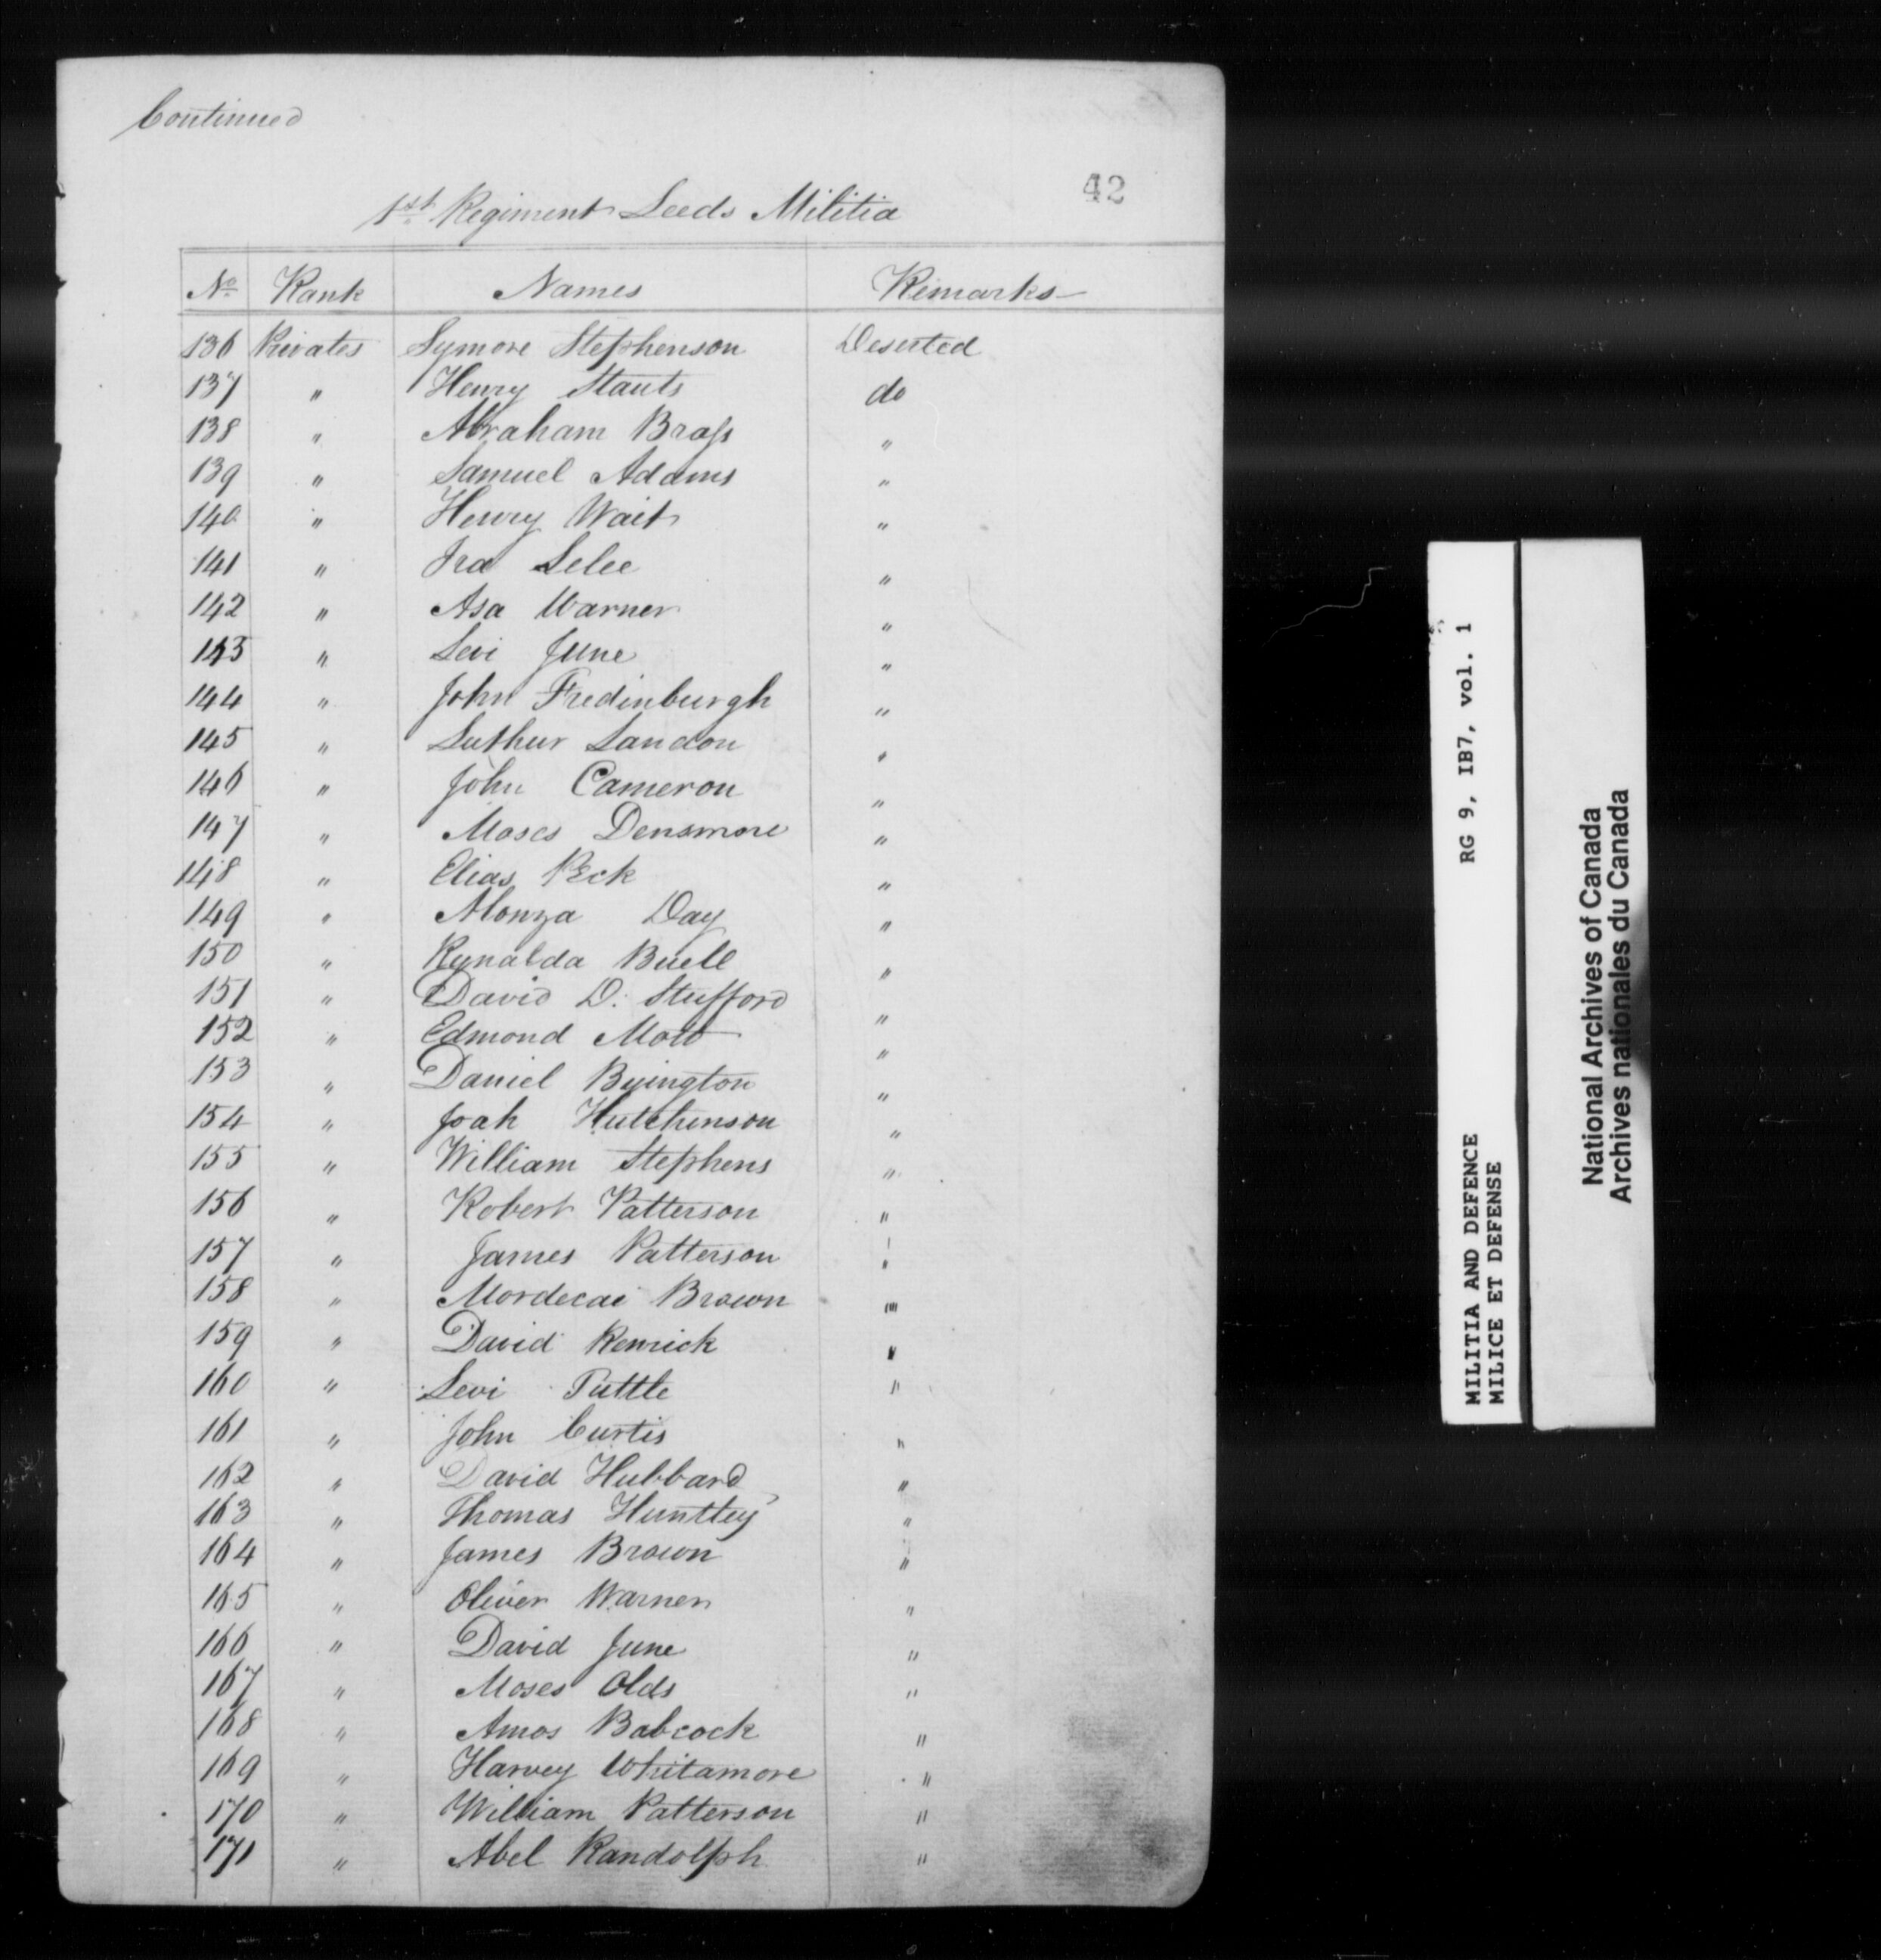 Continued
42
1st Regiment Leeds Militia
No Rank Names Remarks
136 Privates Symore Stephenson Deserted
137 " Henry Stauts do
138 " Abraham Brass "
139 " Samuel Adams "
140 " Henry Wait "
141 " Ira Selee "
142 " Asa Warner "
143 " Levi June "
144 " John Fredinburgh "
145 " Luthur Landon "
146 " John Cameron "
147 " Moses Densmore "
148 " Elias Peck "
149 " Alonza Day "
150 " Rynalda Buell "
151 " David D. Stufford "
152 " Edmond Mott "
153 " Daniel Byington "
154 " Joah Hutchinson "
155 " William Stephens "
156 " Robert Patterson "
157 " James Patterson "
158 " Mordecai Brown "
159 " David Kenrick "
160 " Levi Tuttle "
161 " John Curtis "
162 " David Hubbard "
163 " Thomas Huntley "
164 " James Brown "
165 " Oliver Warner "
166 " David June "
167 " Moses Olds "
168 " Amos Babcock "
169 " Harvey Whitamore "
170 " William Patterson "
171 " Abel Randolph "
MILITIA AND DEFENCE RG 9, IB7, vol. 1
MILICE ET DEFENSE
National Archives of Canada
Archives nationales du Canada